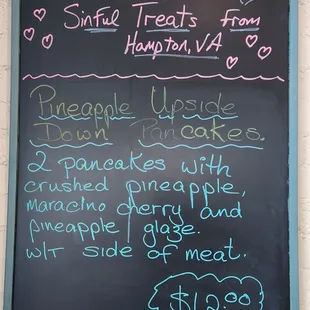 Sinful Treats from
Hampton, VA
Pineapple Upside
Down Pancakes.
2 pancakes with
crushed pineapple,
maracino cherry and
pineapple glaze.
w/r side of meat.
$12.00